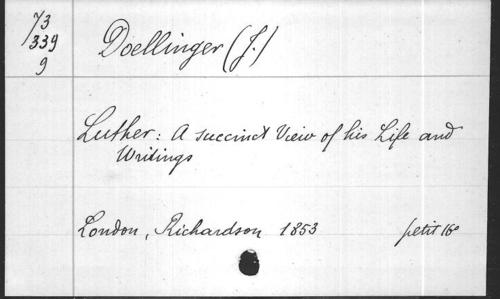 73
339
9
Doellinger (J.)
Luther: A succinct View of his Life and
Writings
London, Richardson 1853 petit 16°